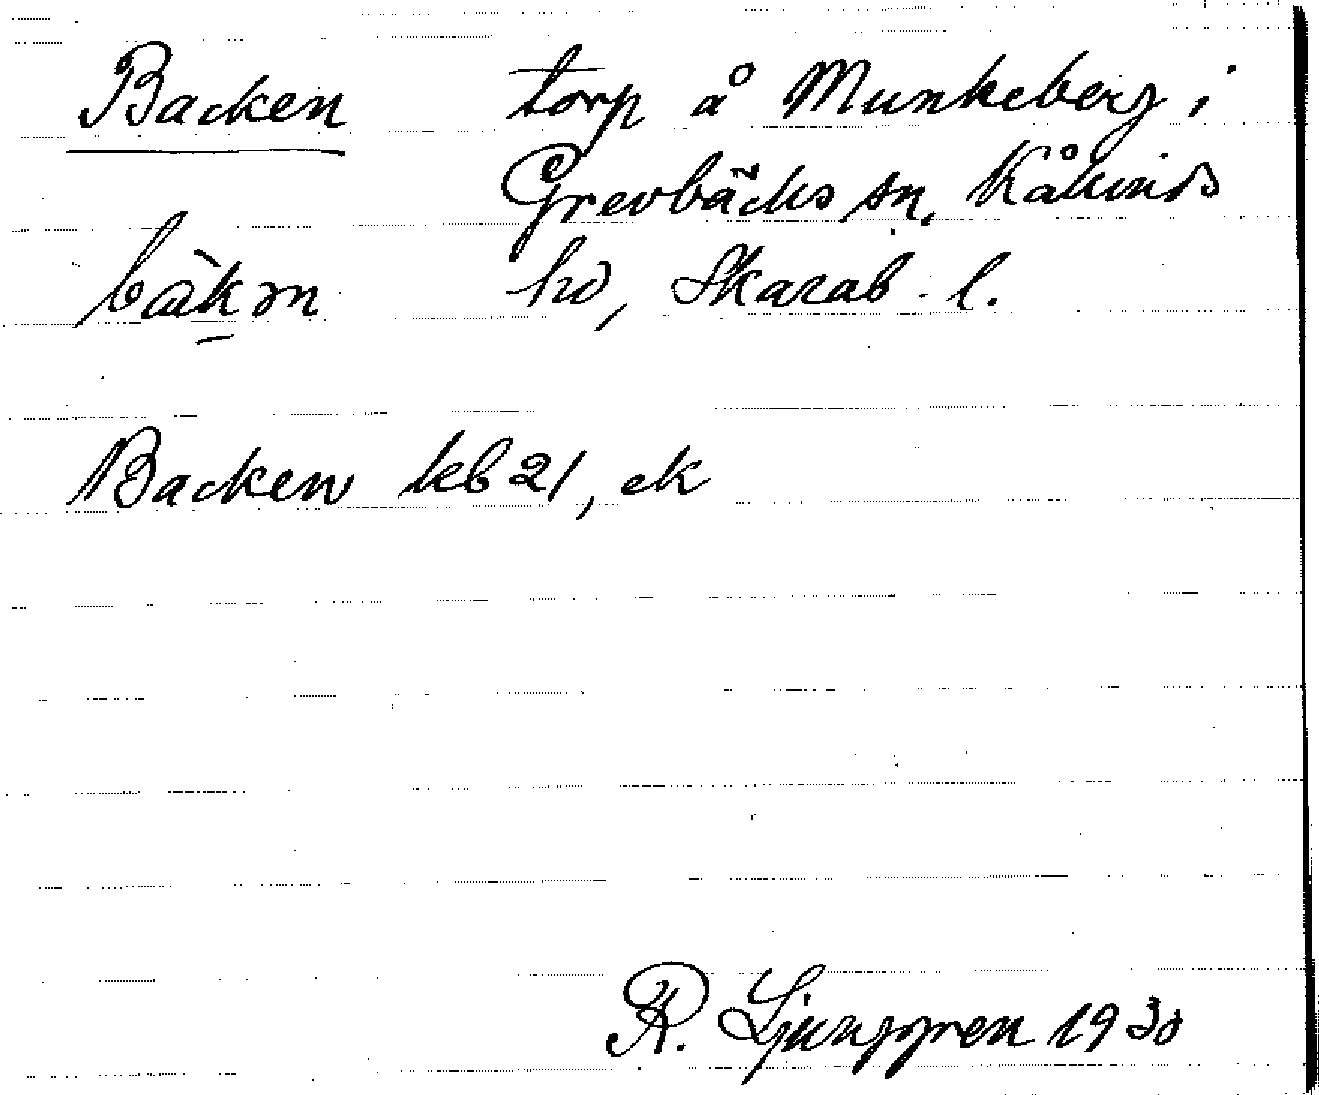 Backen torp å Munkeberg i
Grevbäcks sn, Kåkinds
bàkən hd, Skarab. l.
Backen kb 21, ek
R. Ljunggren 1930